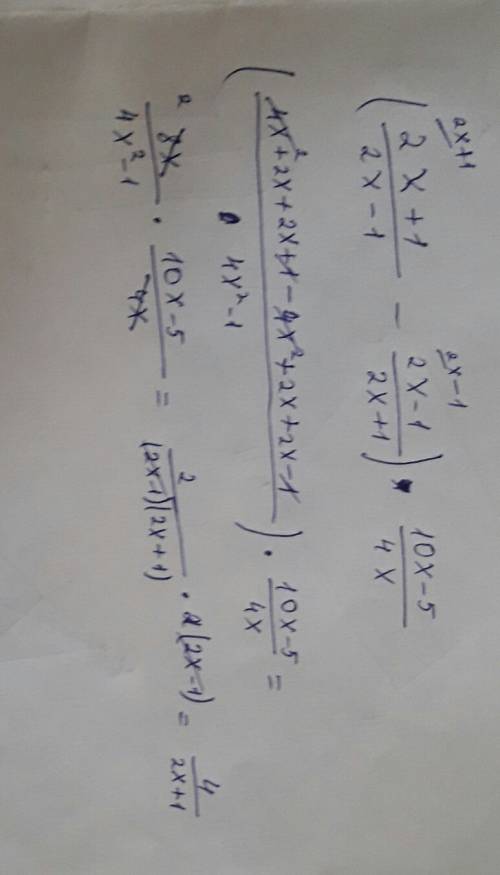 ( (2x+1)/(2x-1) ^(2x+1) - (2x-1)/(2x+1) ^(2x-1) ) · (10x-5)/(4x)
( (4x²+2x+2x+1-4x²+2x+2x-1)/(4x²-1) ) · (10x-5)/(4x) =
2 8x/(4x²-1) · (10x-5)/(4x) = 2/((2x-1)(2x+1)) · 2(2x-1) = 4/(2x+1)